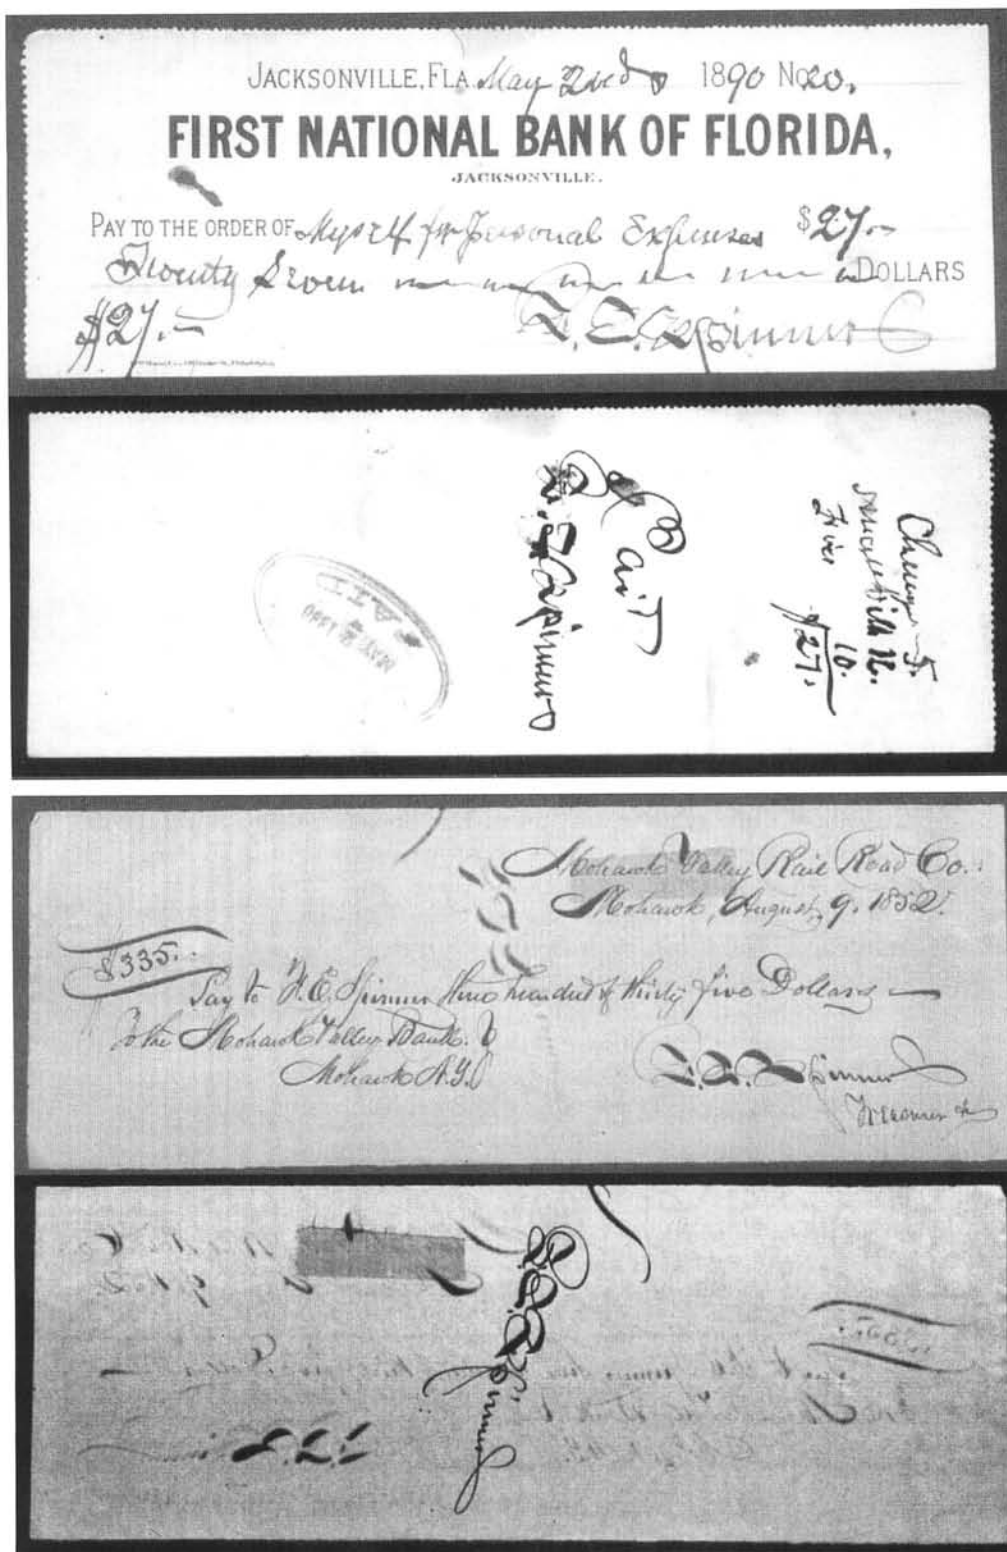 JACKSONVILLE, FLA. May 2nd 1890 No 20.
FIRST NATIONAL BANK OF FLORIDA,
JACKSONVILLE.
PAY TO THE ORDER OF Myself for Personal Expenses $27.—
Twenty Seven DOLLARS
$27.—
F. E. Spinner
F. E. Spinner
Change 5.
12.
Fives 10.
$27.
PAID
MAY 2 1890
Mohawk Valley Rail Road Co.
Mohawk, August, 9. 1852.
$335.
Pay to F. E. Spinner three hundred & thirty five Dollars —
To the Mohawk Valley Bank.
Mohawk N.Y.
F. E. Spinner
Treasurer &c
F. E. Spinner